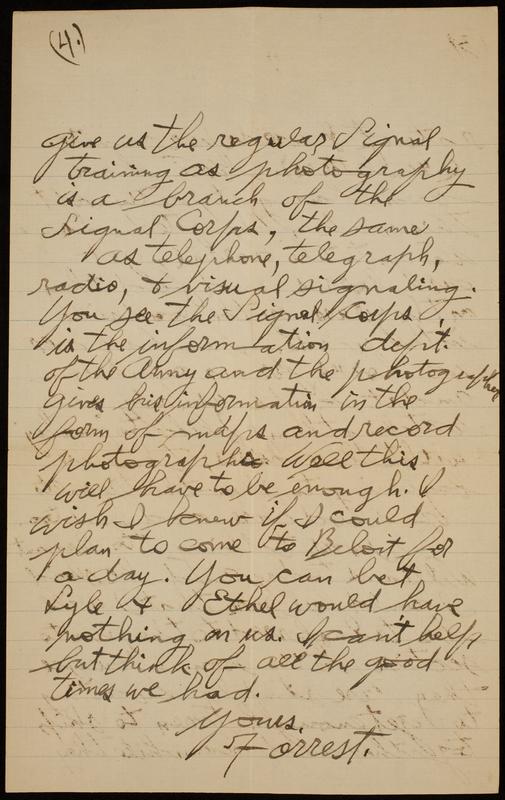 (4.)
give us the regular Signal
training as photography
is a branch of the
Signal Corps, the same
as telephone, telegraph,
radio, & visual signaling.
You see the Signal Corps
is the information dept.
of the Army and the photographer
gives his information in the
form of maps and record
photographs. Well this
will have to be enough. I
wish I knew if I could
plan to come to Beloit for
a day. You can bet
Lyle & Ethel would have
nothing on us. I can't help
but think of all the good
times we had.
Yours.
Forrest.